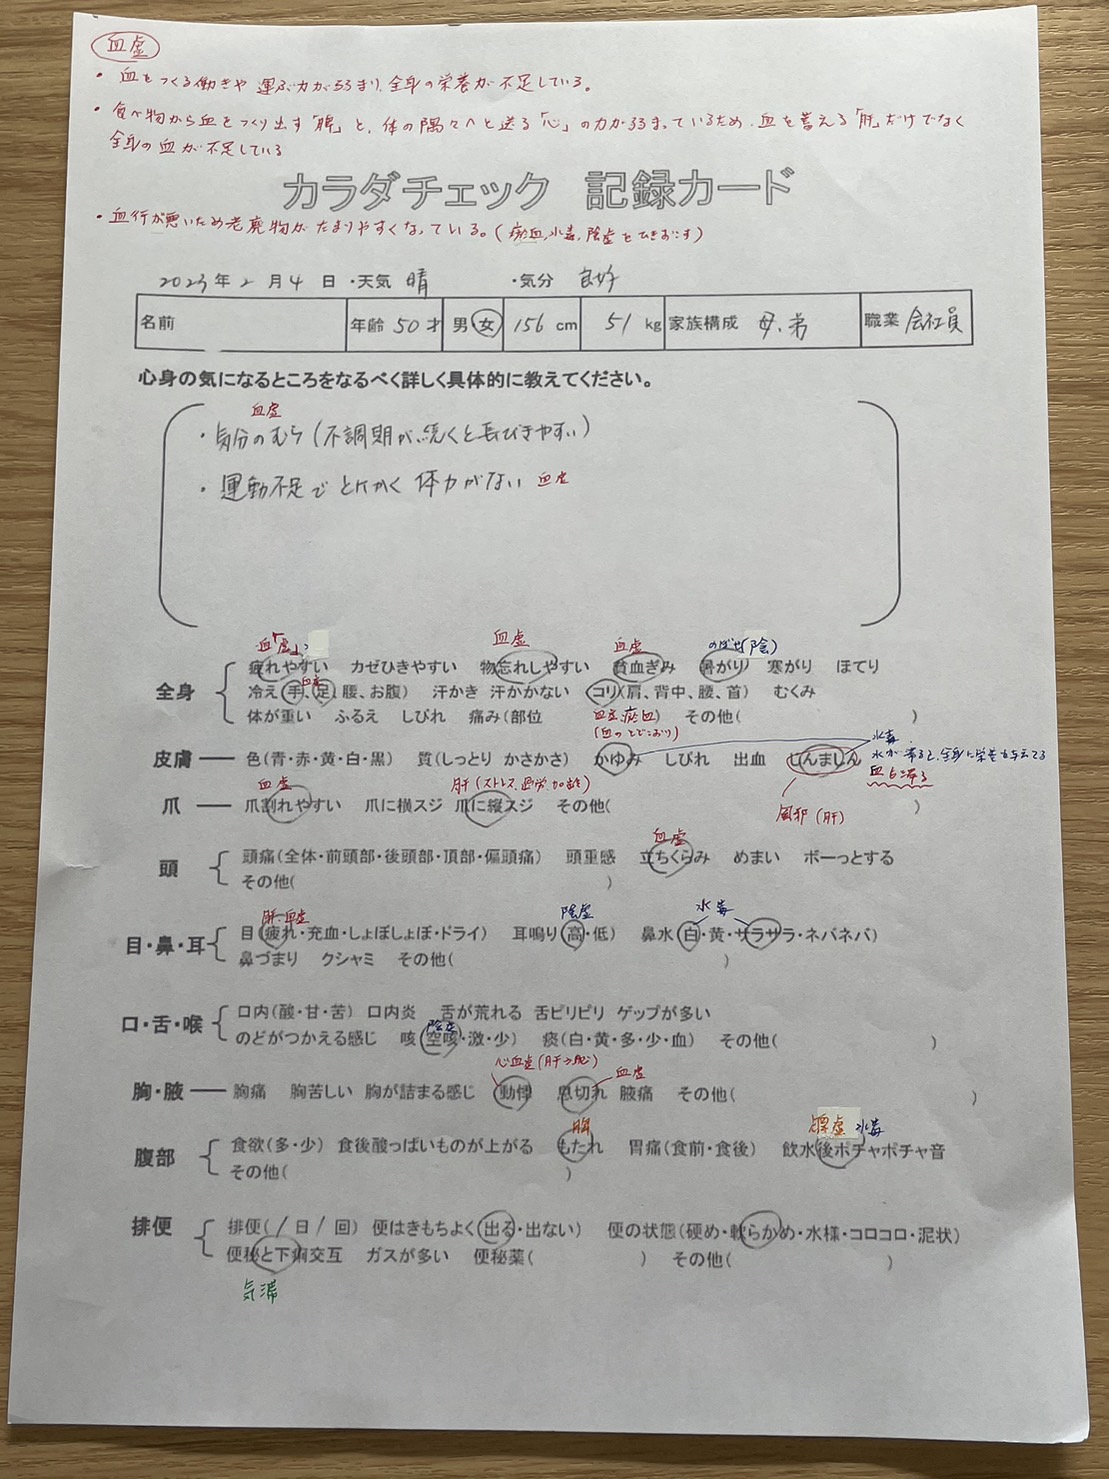 血虚
・血をつくる働きや運ぶ力が弱まり、全身の栄養が不足している。
・食べ物から血をつくり出す「脾」と、体の隅々へと送る「心」の力が弱まっているため、血を蓄える「肝」だけでなく
全身の血が不足している
カラダチェック 記録カード
・血行が悪いため老廃物がたまりやすくなっている。(瘀血、水毒、陰虚をひきおこす)
2023年2月4日 ・天気 晴 ・気分 良好
名前 年齢 50才 男・女 156cm 51kg 家族構成 母、弟 職業 会社員
心身の気になるところをなるべく詳しく具体的に教えてください。
血虚
・気分のむら(不調期が続くと長びきやすい)
・運動不足でとにかく体力がない 血虚
血「虚」 血虚 血虚 のぼせ(陰)
疲れやすい カゼひきやすい 物忘れしやすい 貧血ぎみ 暑がり 寒がり ほてり
血虚
全身 冷え(手、足、腰、お腹) 汗かき 汗かかない コリ(肩、背中、腰、首) むくみ
体が重い ふるえ しびれ 痛み(部位 ) その他( )
血虚、瘀血
(血のとどこおり) 水毒
皮膚 色(青・赤・黄・白・黒) 質(しっとり かさかさ) かゆみ しびれ 出血 じんましん
水が滞ると、全身に栄養を与えてる
血も滞る
血虚 肝(ストレス、過労、加齢)
爪 爪割れやすい 爪に横スジ 爪に縦スジ その他( )
風邪(肝)
血虚
頭 頭痛(全体・前頭部・後頭部・頂部・偏頭痛) 頭重感 立ちくらみ めまい ボーっとする
その他( )
肝・血虚 陰虚 水毒
目・鼻・耳 目(疲れ・充血・しょぼしょぼ・ドライ) 耳鳴り(高・低) 鼻水(白・黄・サラサラ・ネバネバ)
鼻づまり クシャミ その他( )
口・舌・喉 口内(酸・甘・苦) 口内炎 舌が荒れる 舌ピリピリ ゲップが多い
陰虚
のどがつかえる感じ 咳(空咳・激・少) 痰(白・黄・多・少・血) その他( )
心血虚(肝→心) 血虚
胸・腋 胸痛 胸苦しい 胸が詰まる感じ 動悸 息切れ 腋痛 その他( )
脾 脾虚 水毒
腹部 食欲(多・少) 食後酸っぱいものが上がる もたれ 胃痛(食前・食後) 飲水後ポチャポチャ音
その他( )
排便 排便( / 日 / 回) 便はきもちよく(出る・出ない) 便の状態(硬め・軟らかめ・水様・コロコロ・泥状)
便秘と下痢交互 ガスが多い 便秘薬( ) その他( )
気滞